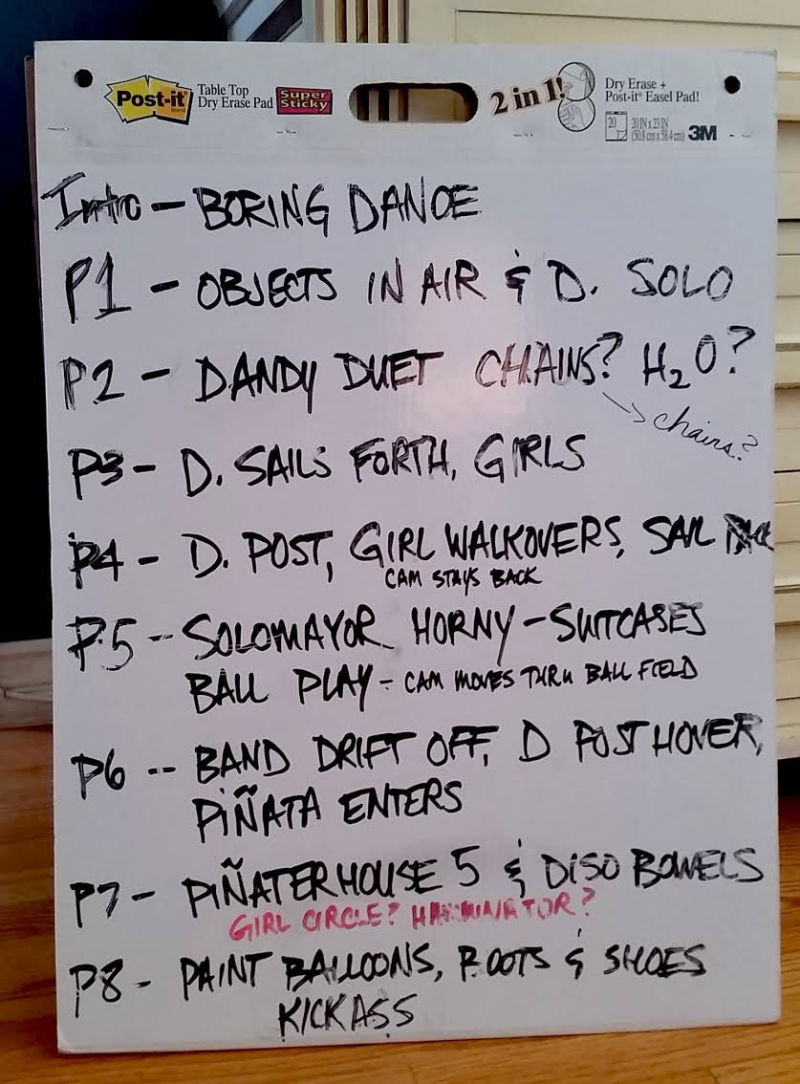 Post-it Brand
Table Top
Dry Erase Pad
Super Sticky
2 in 1!
Dry Erase +
Post-it® Easel Pad!
20
20 IN x 23 IN
(50.8 cm x 58.4 cm)
3M
Intro – BORING DANCE
P1 – OBJECTS IN AIR & D. SOLO
P2 – DANDY DUET CHAINS? H₂O?
chains?
P3 – D. SAILS FORTH, GIRLS
P4 – D. POST, GIRL WALKOVERS, SAIL
CAM STAYS BACK
P.5 -- SOLOMAYOR HORNY – SUITCASES
BALL PLAY – CAM MOVES THRU BALL FIELD
P6 -- BAND DRIFT OFF, D POST HOVER,
PIÑATA ENTERS
P7 – PIÑATERHOUSE 5 & DISO BOWELS
GIRL CIRCLE?
P8 - PAINT BALLOONS, BOOTS & SHOES
KICKASS